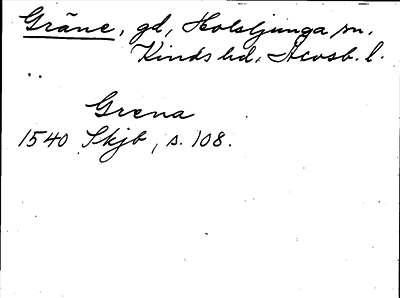 Gräne, gd, Holsljunga sn.
Kinds hd. Älvsb. l.
Grena
1540 Skjb, s. 108.